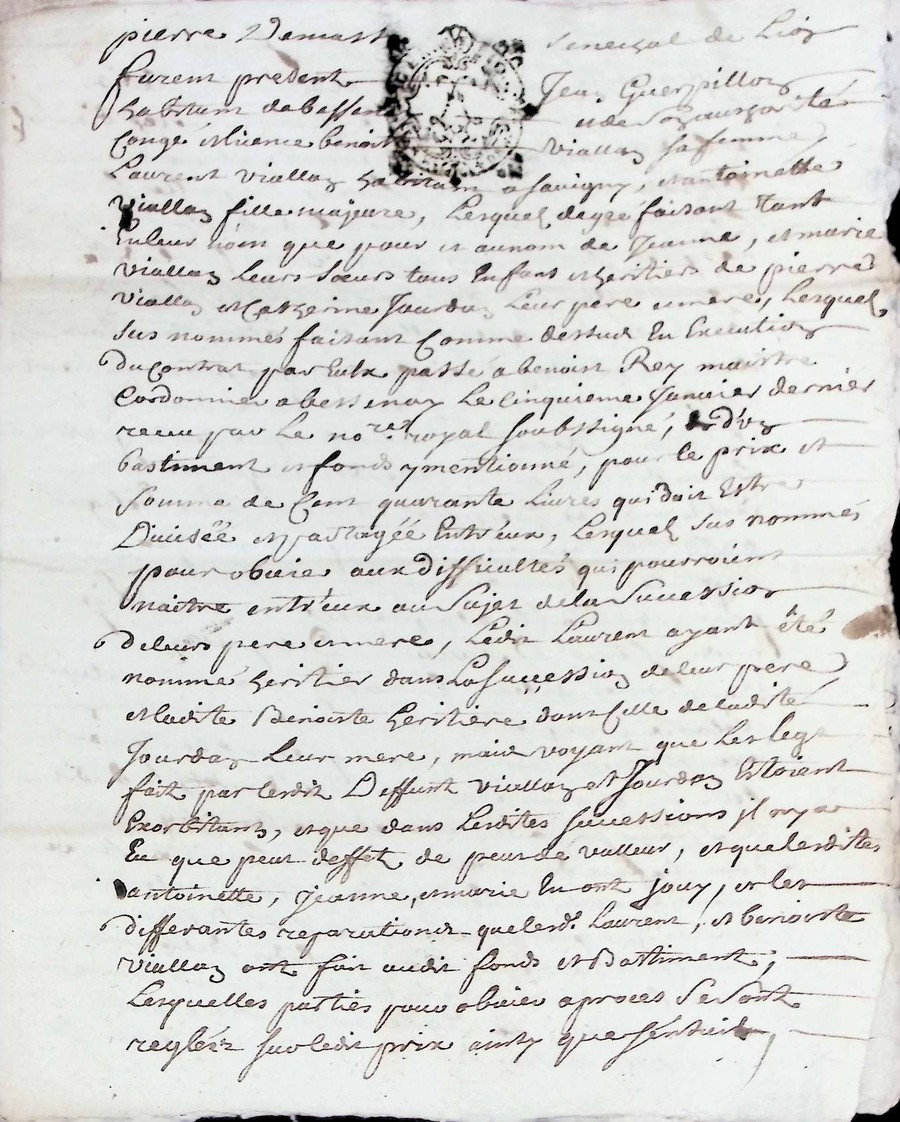 pierre Demast senechal de Lion
furent present Jean Guerpillon
habitant de bessen et de Margarite
Congé et licence benoit Viallon sa femme
Laurent Viallon habitant a Savigny, et antoinette
Viallon fille majeure, Lesquels de gré faisant tant
En leur nom que pour et au nom de Jeanne, et marie
Viallon Leurs sœurs tous Enfant et heritiers de pierre
Viallon et Catherine Jourdan Leur pere et mere, Lesquels
sus nommés faisant comme dessus En Execution
Du Contrat par Eulx passé a benoist Rey maistre
Cordonnier a bessenay Le Cinquieme Janvier dernier
receu par Le no.re royal soubssigné, d'un
bastiment et fonds y mentionné, pour le prix et
somme de Cent quarante Livres qui doit Estre
Divisée et partagée Entr'eux, Lesquels sus nommés
pour obvie aux difficultés qui pourroient
naitre entr'eux au sujet de la succession
de leurs pere et mere, Ledit Laurent ayant été
nommé heritier dans La succession de leur pere
et Ladite Benoiste heritiere dans Celle de ladite
Jourdan Leur mere, mais voyant que Les legs
fait par lesdit Deffunt Viallon et Jourdan Estoient
Exorbitants, et que dans Lesdites successions il ny a
Eu que peut deffet de peut de valleur, et que lesdites
antoinette, jeanne, et marie En ont jouy, et les
differantes reparations que lesd. Laurent, et benoiste
Viallon ont fait audit fonds et Battiment,
Lesquelles parties pour obvier a proces se sont
reglées sur ledit prix ainsy que s'ensuit,